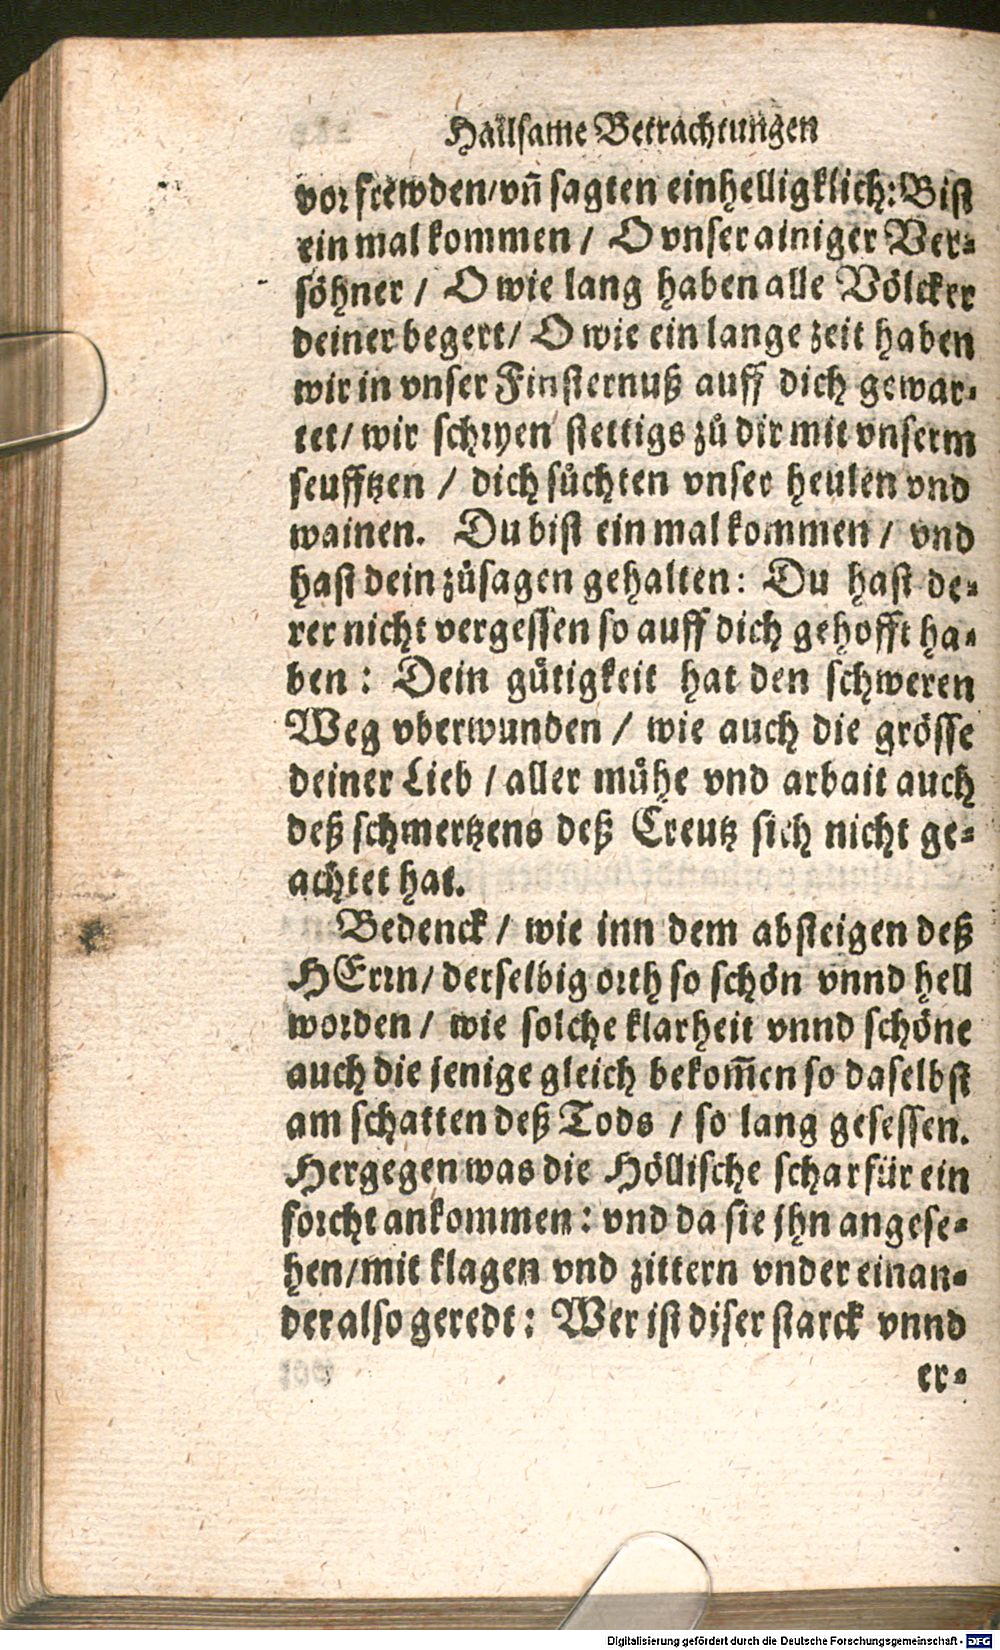 Hailsame Betrachtungen
vor frewden/ vñ sagten einhelligklich: Bist
ein mal kommen / O vnser ainiger Ver-
söhner / O wie lang haben alle Völcker
deiner begert/ O wie ein lange zeit haben
wir in vnser Finsternuß auff dich gewar-
tet/ wir schryen stettigs zů dir mit vnserm
seufftzen / dich sůchten vnser heulen vnd
wainen. Du bist ein mal kommen / vnd
hast dein zůsagen gehalten: Du hast de-
rer nicht vergessen so auff dich gehofft ha-
ben : Dein gütigkeit hat den schweren
Weg vberwunden / wie auch die grösse
deiner Lieb / aller mühe vnd arbait auch
deß schmertzens deß Creutz sich nicht ge-
achtet hat.
Bedenck / wie inn dem absteigen deß
HErrn/ derselbig orth so schön vnnd hell
worden / wie solche klarheit vnnd schöne
auch die jenige gleich bekom̃en so daselbst
am schatten deß Tods / so lang gesessen.
Hergegen was die Höllische schar für ein
forcht ankommen : vnd da sie jhn angese-
hen/ mit klagen vnd zittern vnder einan-
der also geredt : Wer ist diser starck vnnd
er-
Digitalisierung gefördert durch die Deutsche Forschungsgemeinschaft - DFG